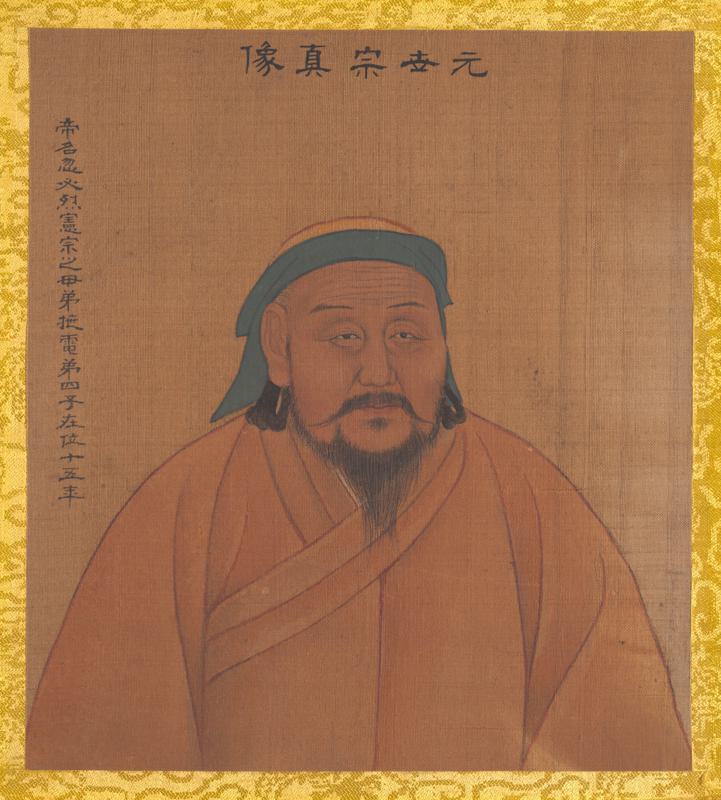 元世宗真像
帝名忽必烈憲宗之母弟拖電弟四子在位十五年